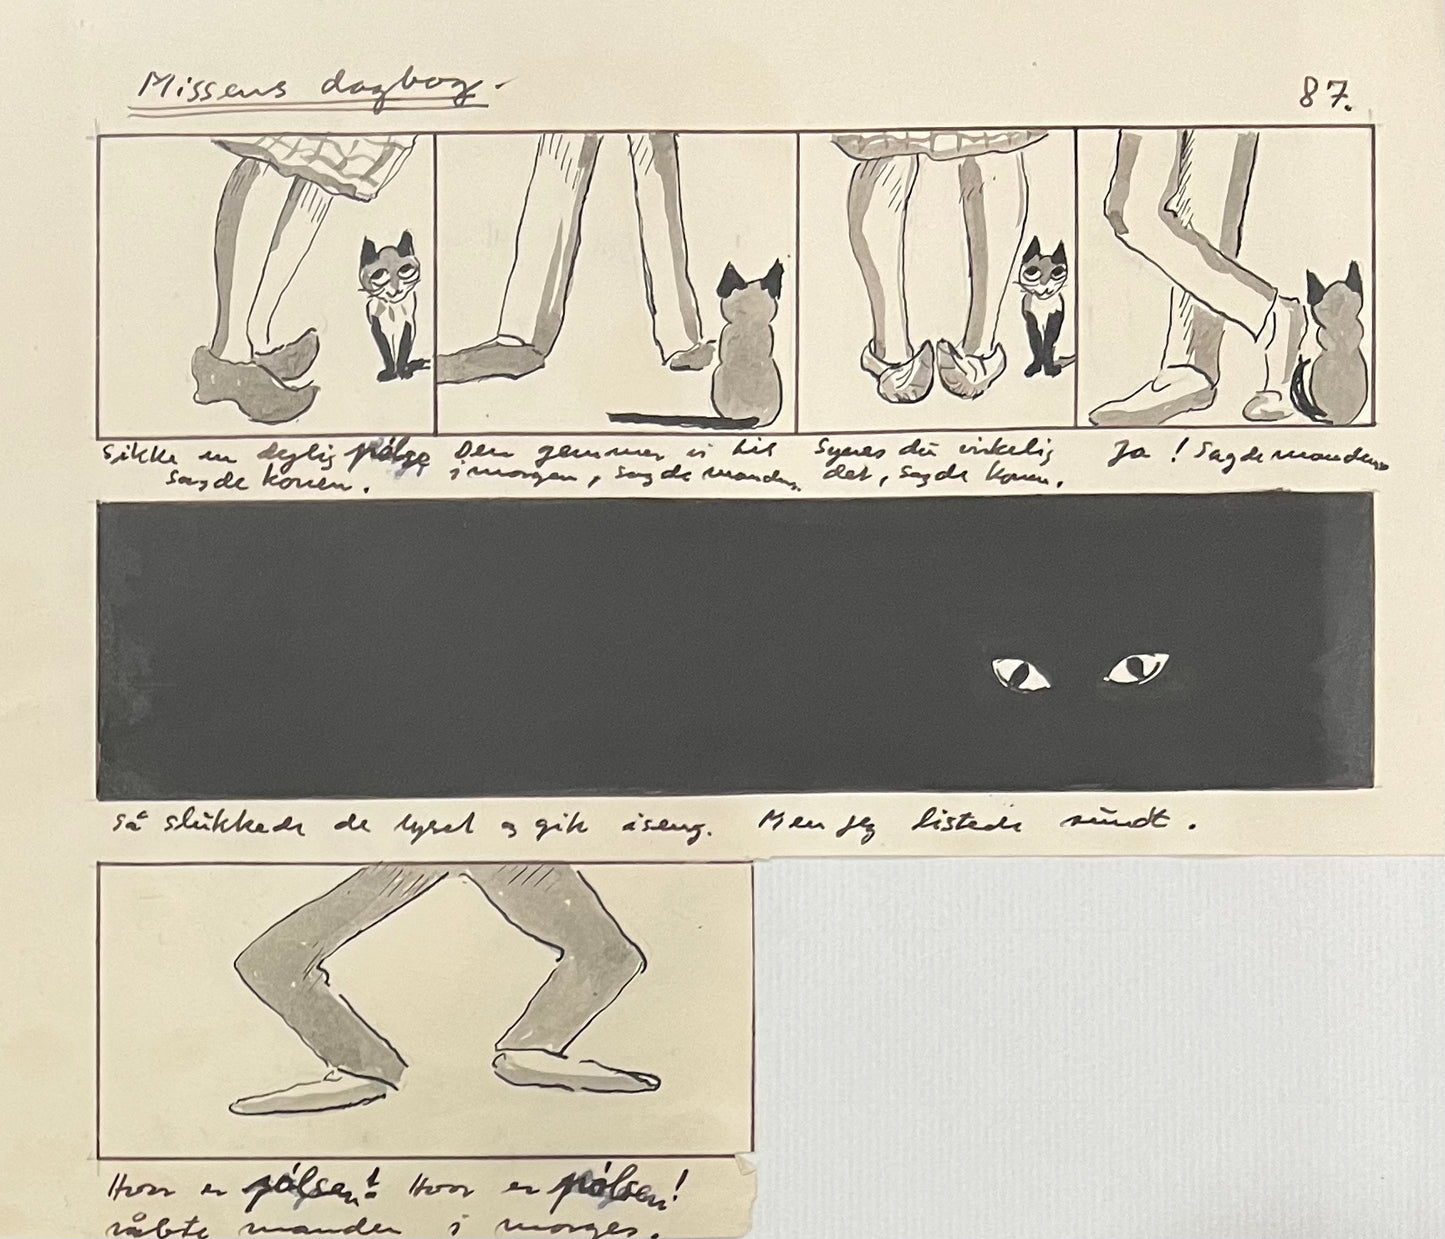 Missens dagbog.
87.
Sikke en dejlig pølse
sagde konen.
Den gemmer vi til
i morgen, sagde manden.
Synes du virkelig
det, sagde konen.
Ja! sagde manden
så slukkede de lyset og gik i seng. Men jeg listede rundt.
Hvor er pølsen! Hvor er pølsen!
råbte manden i morges.